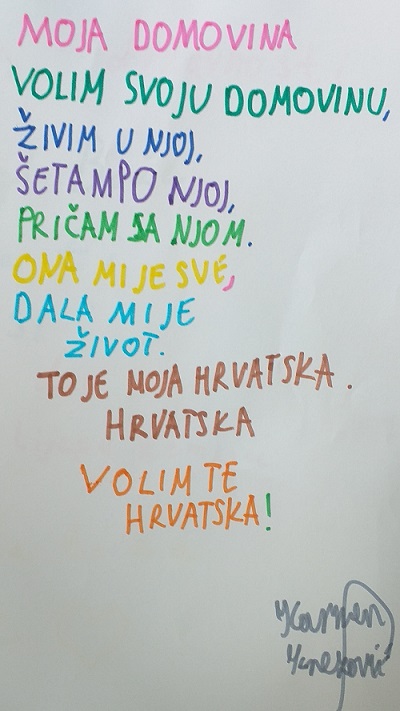 MOJA DOMOVINA
VOLIM SVOJU DOMOVINU,
ŽIVIM U NJOJ,
ŠETAM PO NJOJ,
PRIČAM SA NJOM.
ONA MI JE SVE,
DALA MI JE
ŽIVOT.
TO JE MOJA HRVATSKA.
HRVATSKA
VOLIM TE
HRVATSKA!
Karmen